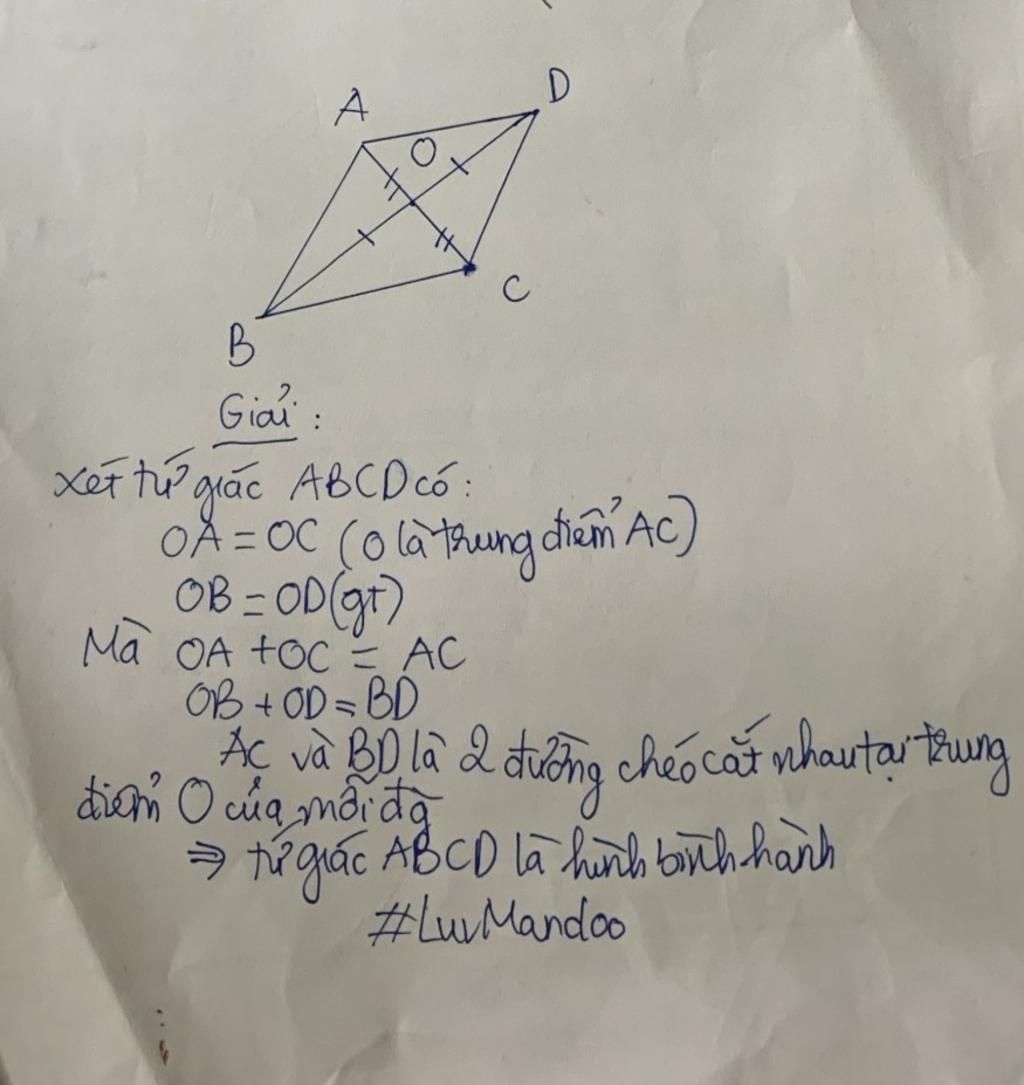 A
D
O
C
B
Giải:
xét tứ giác ABCD có:
OA = OC (O là trung điểm AC)
OB = OD (gt)
Mà OA + OC = AC
OB + OD = BD
AC và BD là 2 đường chéo cắt nhau tại trung
điểm O của mỗi đg
⇒ tứ giác ABCD là hình bình hành
#LuvMandoo